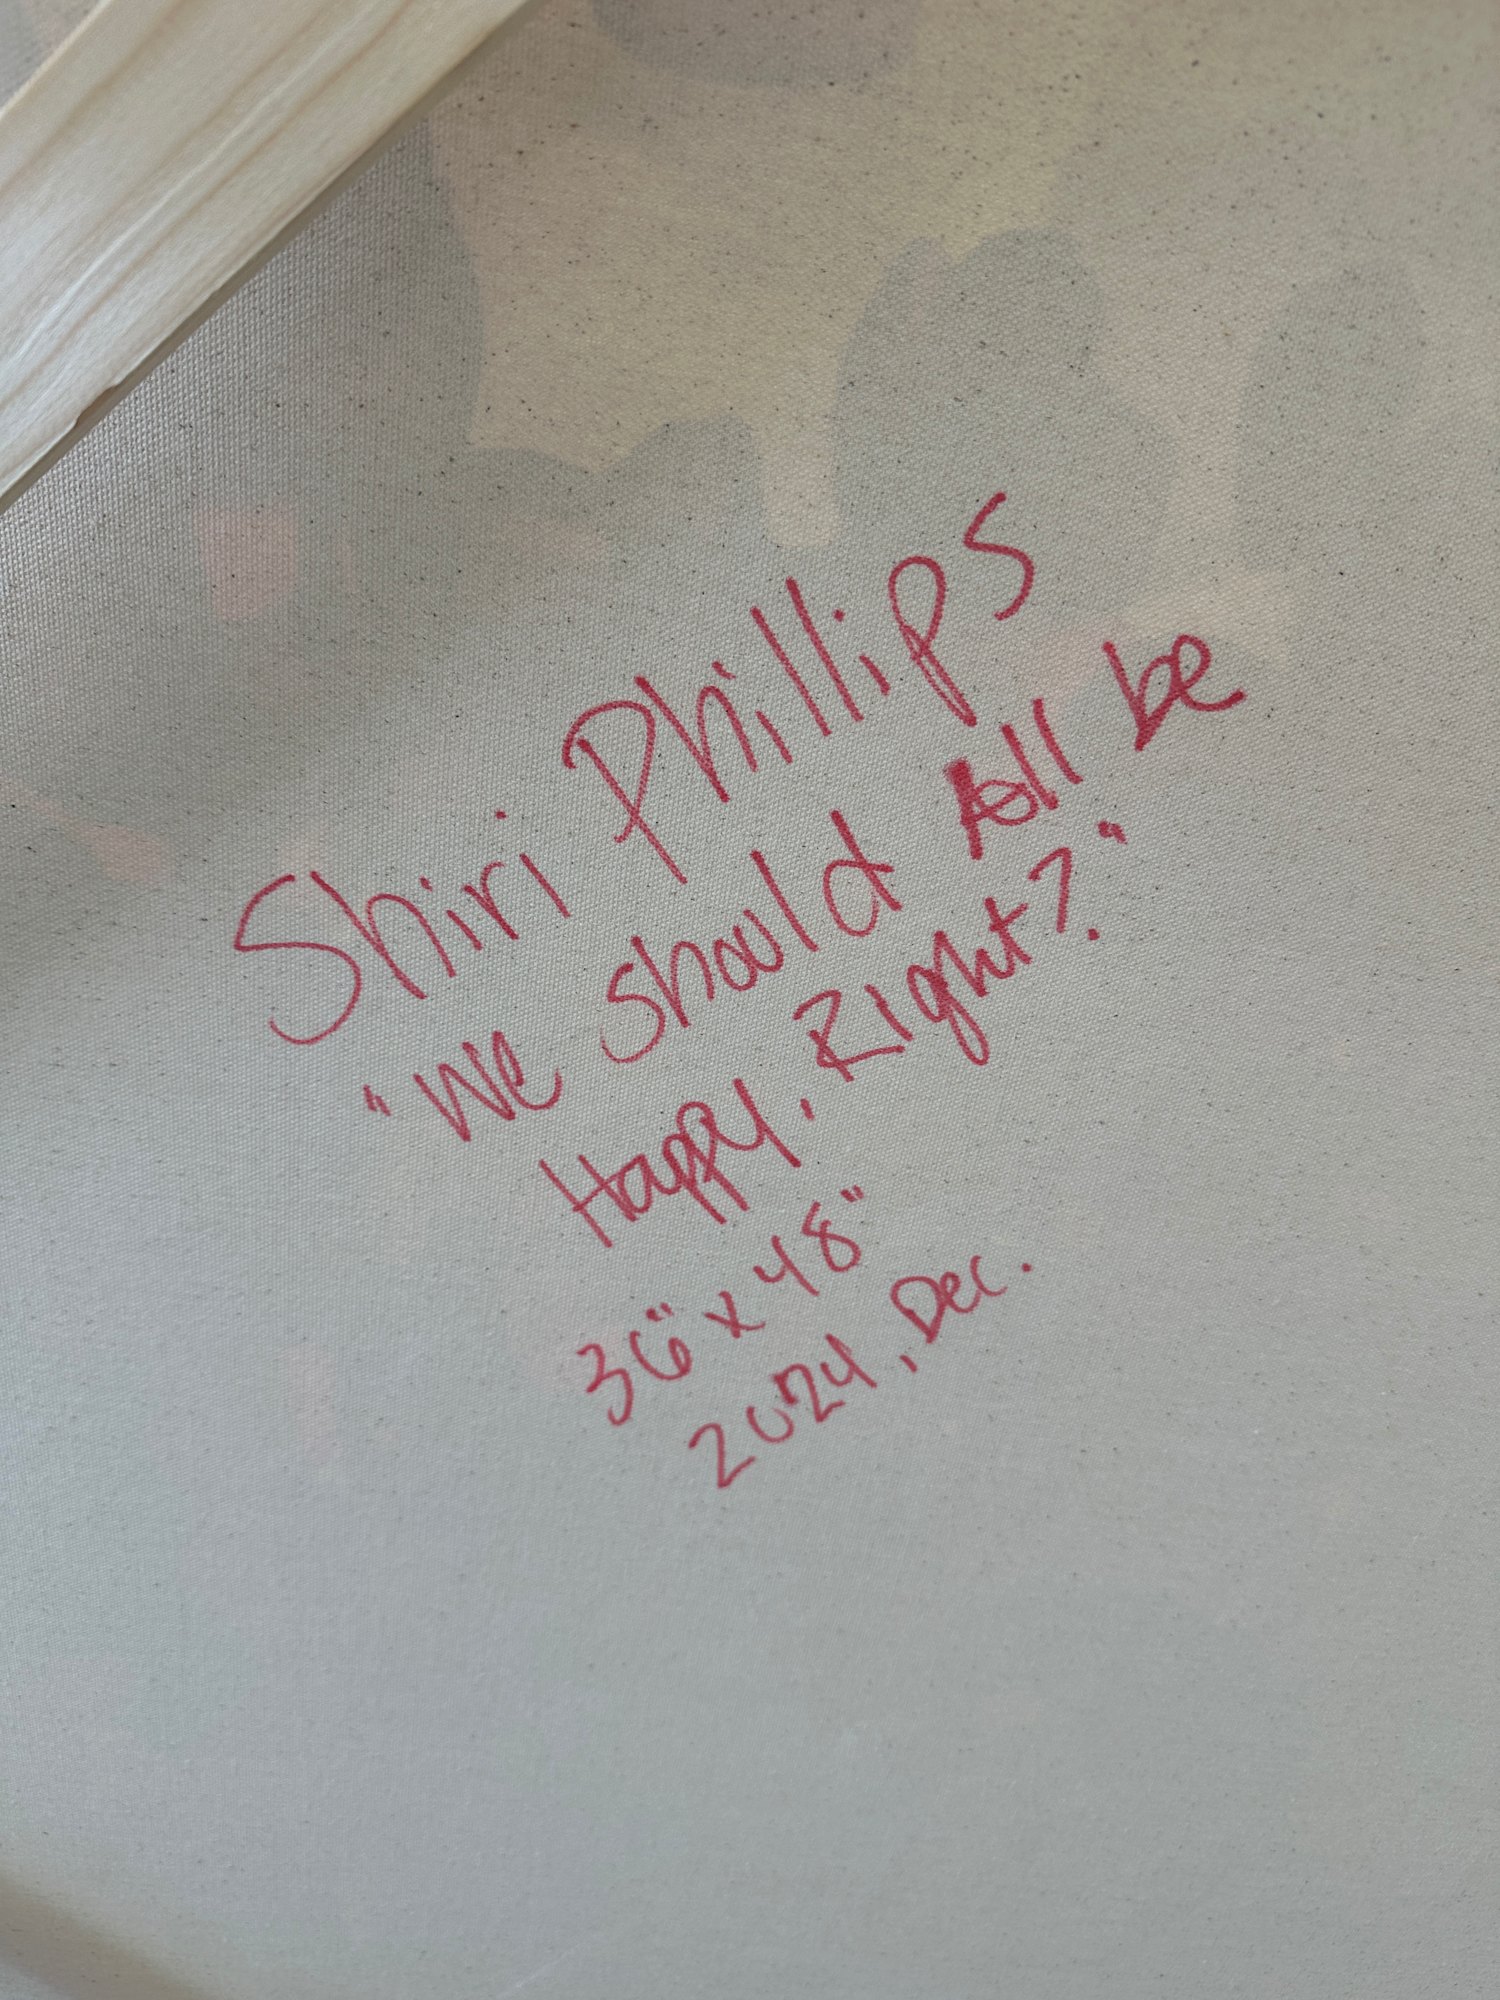 Shiri Phillips
"We should All be
Happy, Right?"
36" x 48"
2024, Dec.